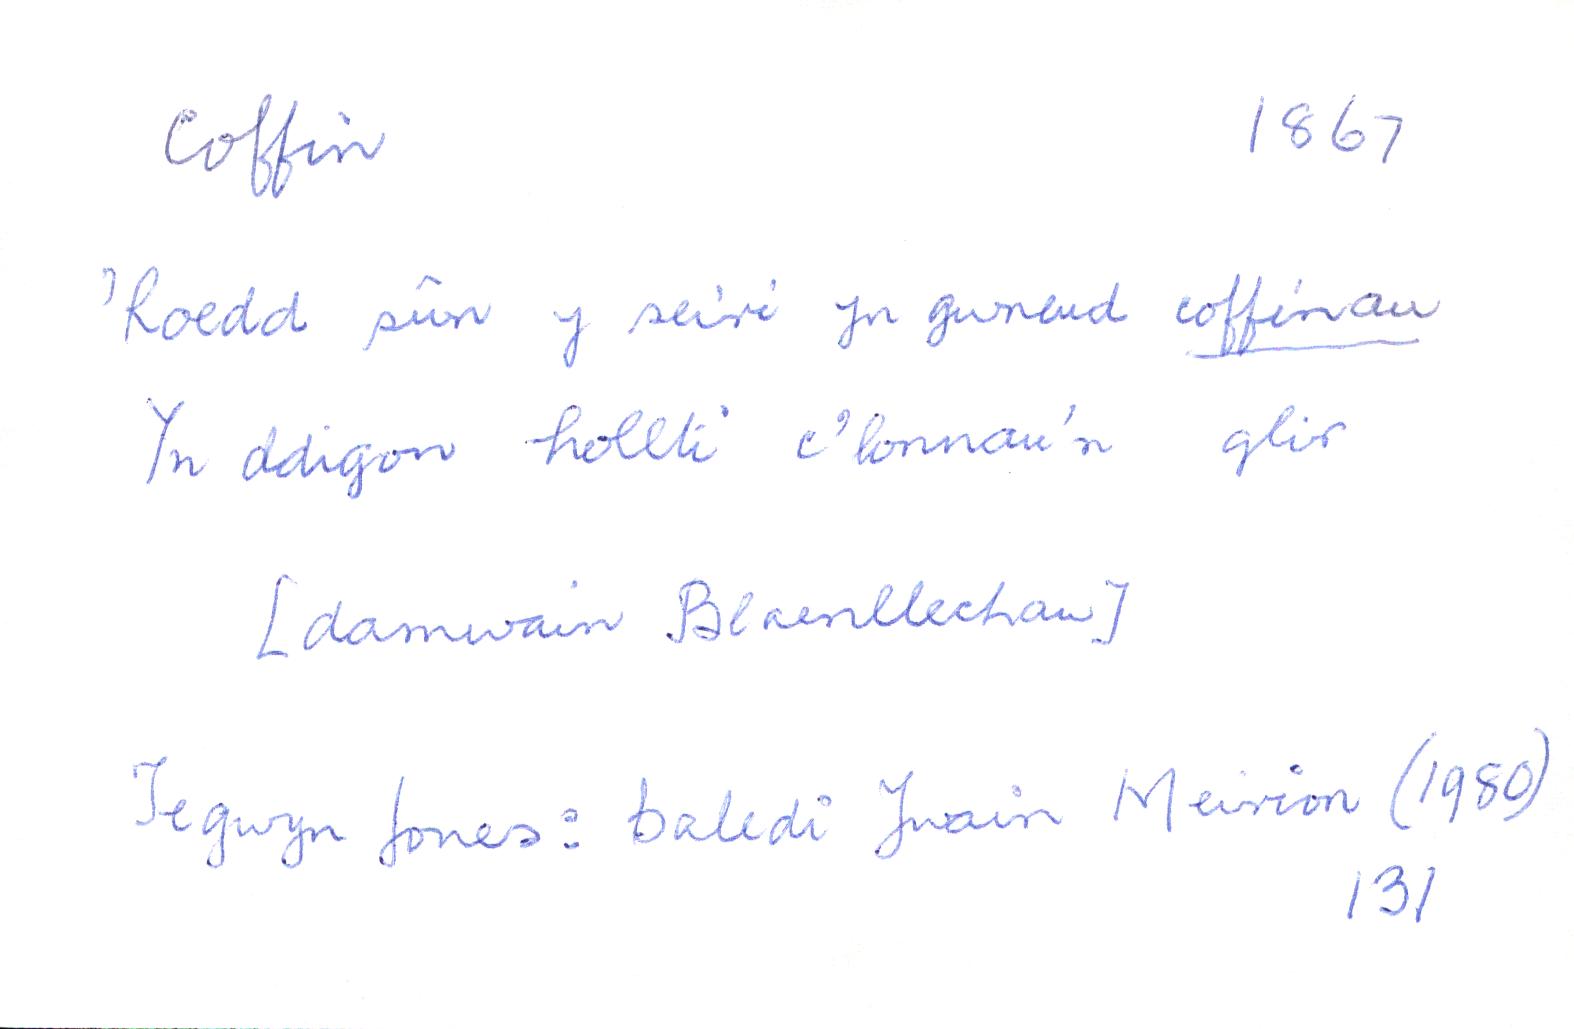 Coffin 1867
'Roedd sŵn y seiri yn gwneud coffinau
Yn ddigon hollti c'lonnau'n glir
[damwain Blaenllechau]
Tegwyn Jones: baledi Ywain Meirion (1980)
131